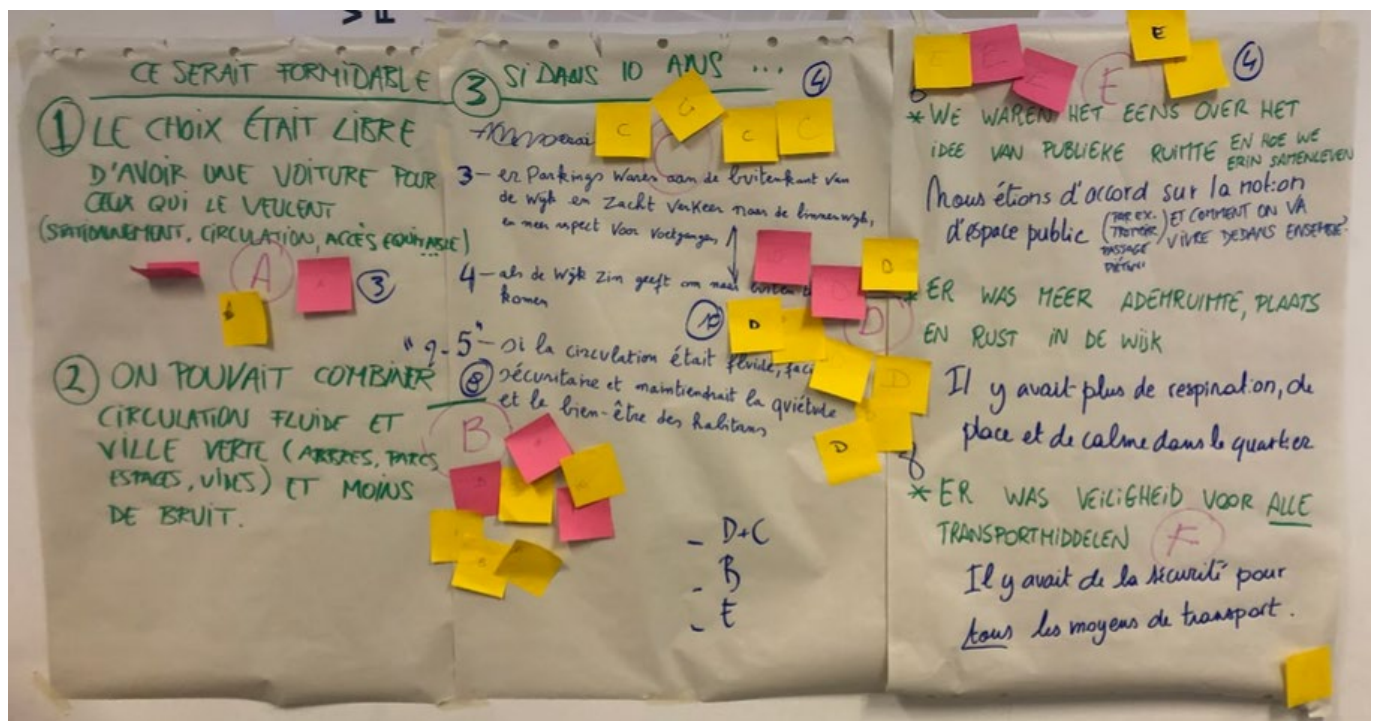 CE SERAIT FORMIDABLE
① LE CHOIX ÉTAIT LIBRE
D'AVOIR UNE VOITURE POUR
CEUX QUI LE VEULENT
(STATIONNEMENT, CIRCULATION, ACCÈS EQUITABLE)
A
③
② ON POUVAIT COMBINER
CIRCULATION FLUIDE ET
VILLE VERTE (ARBRES, PARCS
ESPACES, VIDES) ET MOINS
DE BRUIT.
B
⑧
③ SI DANS 10 ANS ...
④
C C C C
C
3 - er Parkings waren aan de buitenkant van
de wijk en zacht verkeer naar de binnenwijk,
en meer respect voor voetgangers
4 - als de wijk zin geeft om naar buiten te
komen
D
D
D
D
D
5 - si la circulation était fluide,
sécuritaire et maintiendrait la quiétude
et le bien-être des habitans
- D+C
- B
- E
E E E E
E
④
* WE WAREN HET EENS OVER HET
IDEE VAN PUBLIEKE RUIMTE EN HOE WE
ERIN SAMENLEVEN
Nous étions d'accord sur la notion
d'espace public (PAR EX. TROTTOIR PASSAGE PIÉTON) ET COMMENT ON VA
VIVRE DEDANS ENSEMBLE
* ER WAS MEER ADEMRUIMTE, PLAATS
EN RUST IN DE WIJK
Il y avait plus de respiration, de
place et de calme dans le quartier
* ER WAS VEILIGHEID VOOR ALLE
TRANSPORTMIDDELEN
F
Il y avait de la sécurité pour
tous les moyens de transport.